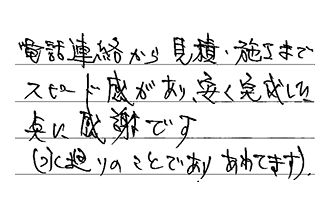 電話連絡から見積・施工まで
スピード感があり、安く完成した
点に感謝です
(水廻りのことでありあわてます).